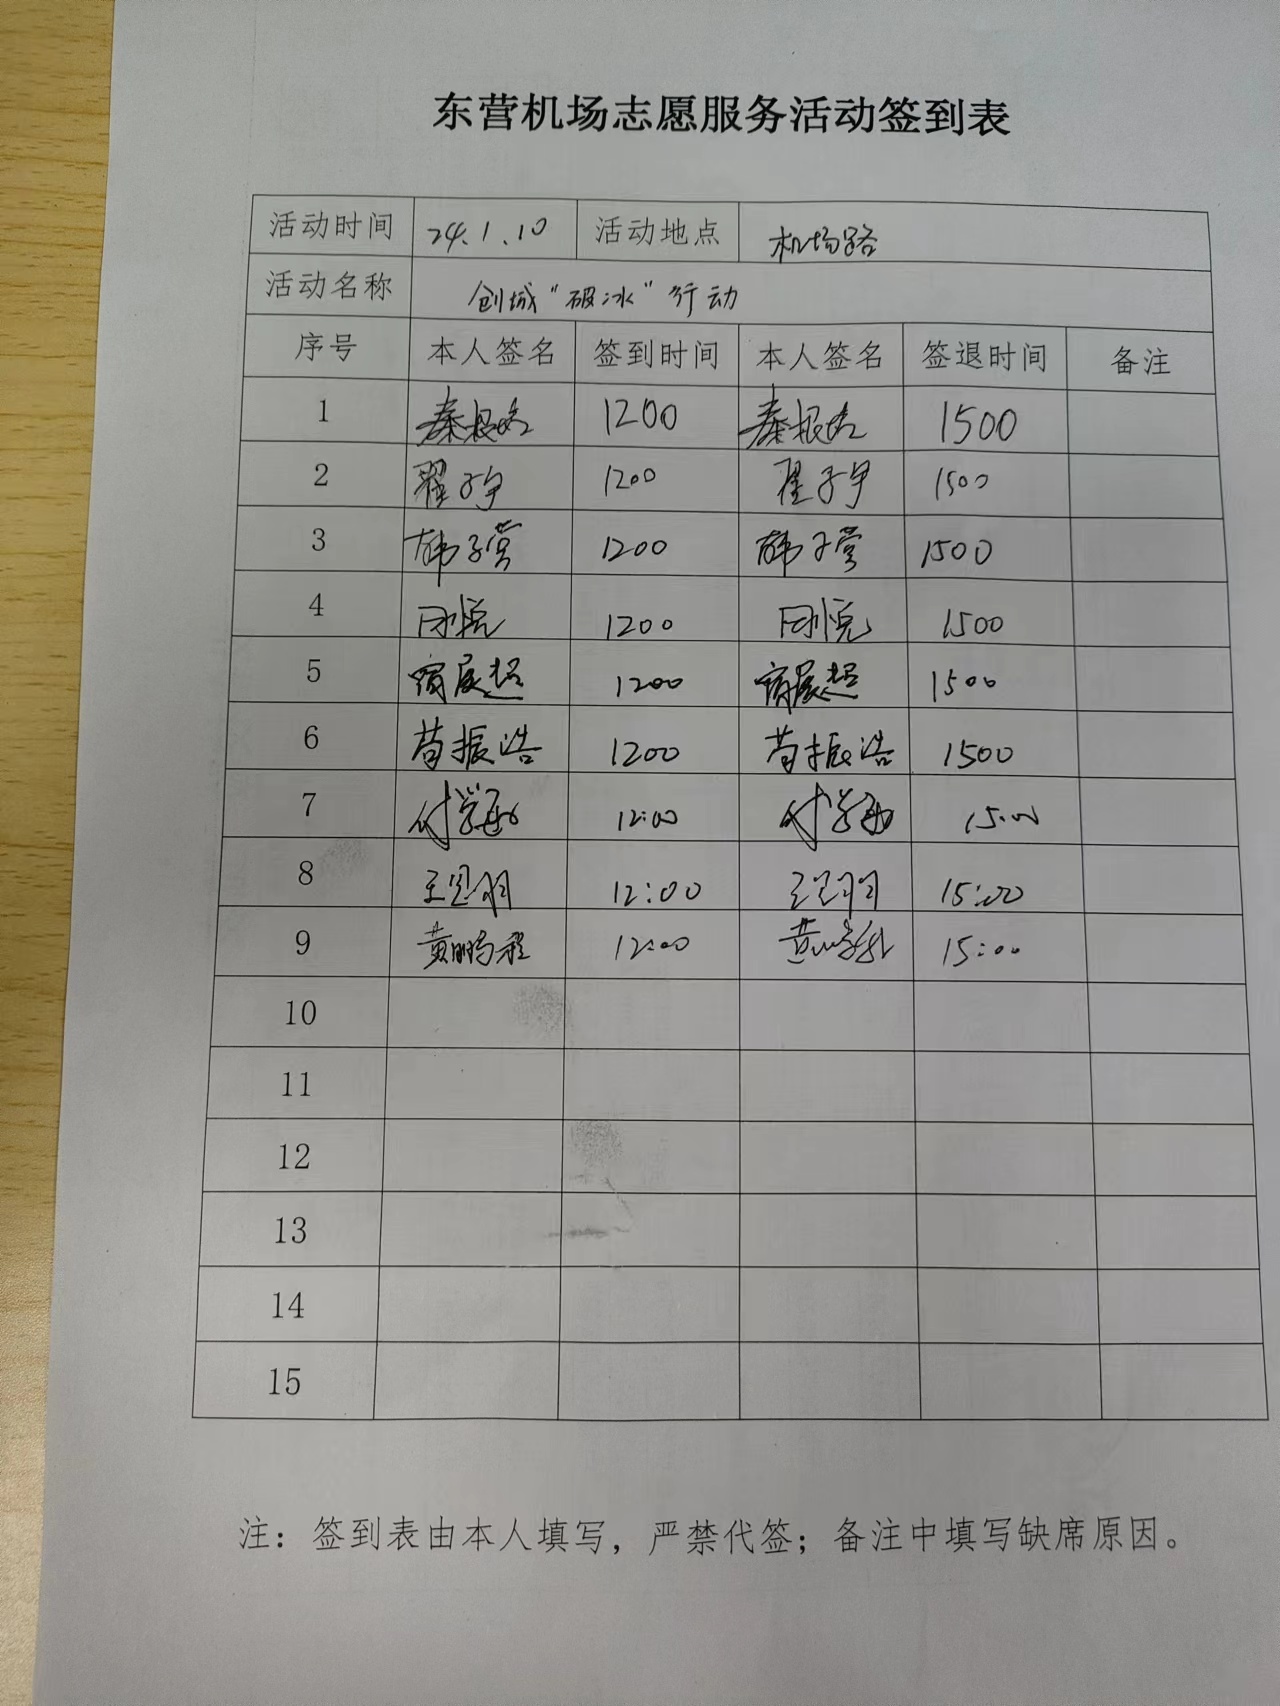 东营机场志愿服务活动签到表
活动时间 24.1.10 活动地点 机场路
活动名称 创城“破冰”行动
序号 本人签名 签到时间 本人签名 签退时间 备注
1 秦根 1200 秦根 1500
2 翟子尹 1200 翟子尹 1500
3 韩子莹 1200 韩子莹 1500
4 悦 1200 悦 1500
5 展超 1200 展超 1500
6 苟振浩 1200 苟振浩 1500
7 付学 12:00 付学 15:00
8 王思羽 12:00 王思羽 15:00
9 黄鹏程 12:00 黄鹏程 15:00
10
11
12
13
14
15
注：签到表由本人填写，严禁代签；备注中填写缺席原因。